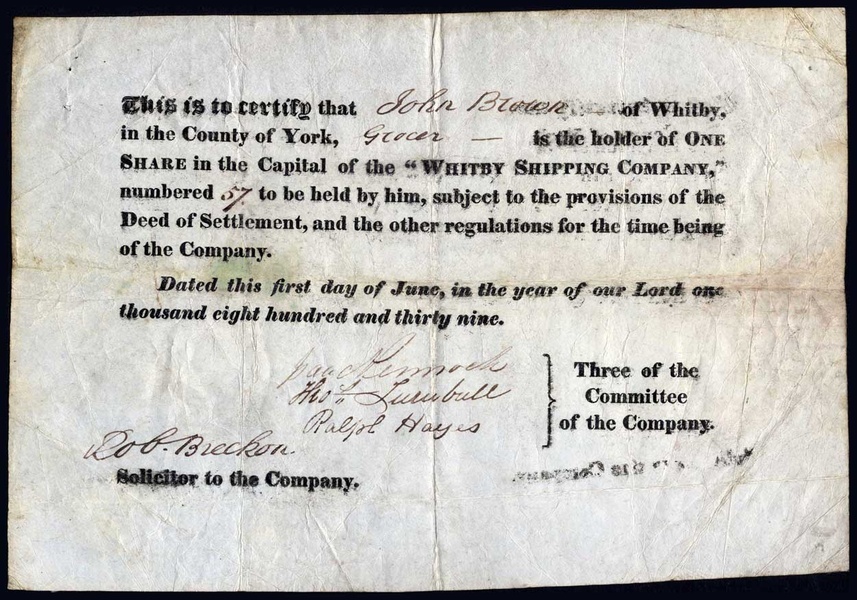 This is to certify that John Brown of Whitby,
in the County of York, Grocer — is the holder of ONE
SHARE in the Capital of the "WHITBY SHIPPING COMPANY,"
numbered 57 to be held by him, subject to the provisions of the
Deed of Settlement, and the other regulations for the time being
of the Company.
Dated this first day of June, in the year of our Lord one
thousand eight hundred and thirty nine.
Thos. Turnbull
Ralph Hayes
Three of the
Committee
of the Company.
Rob. Breckon
Solicitor to the Company.